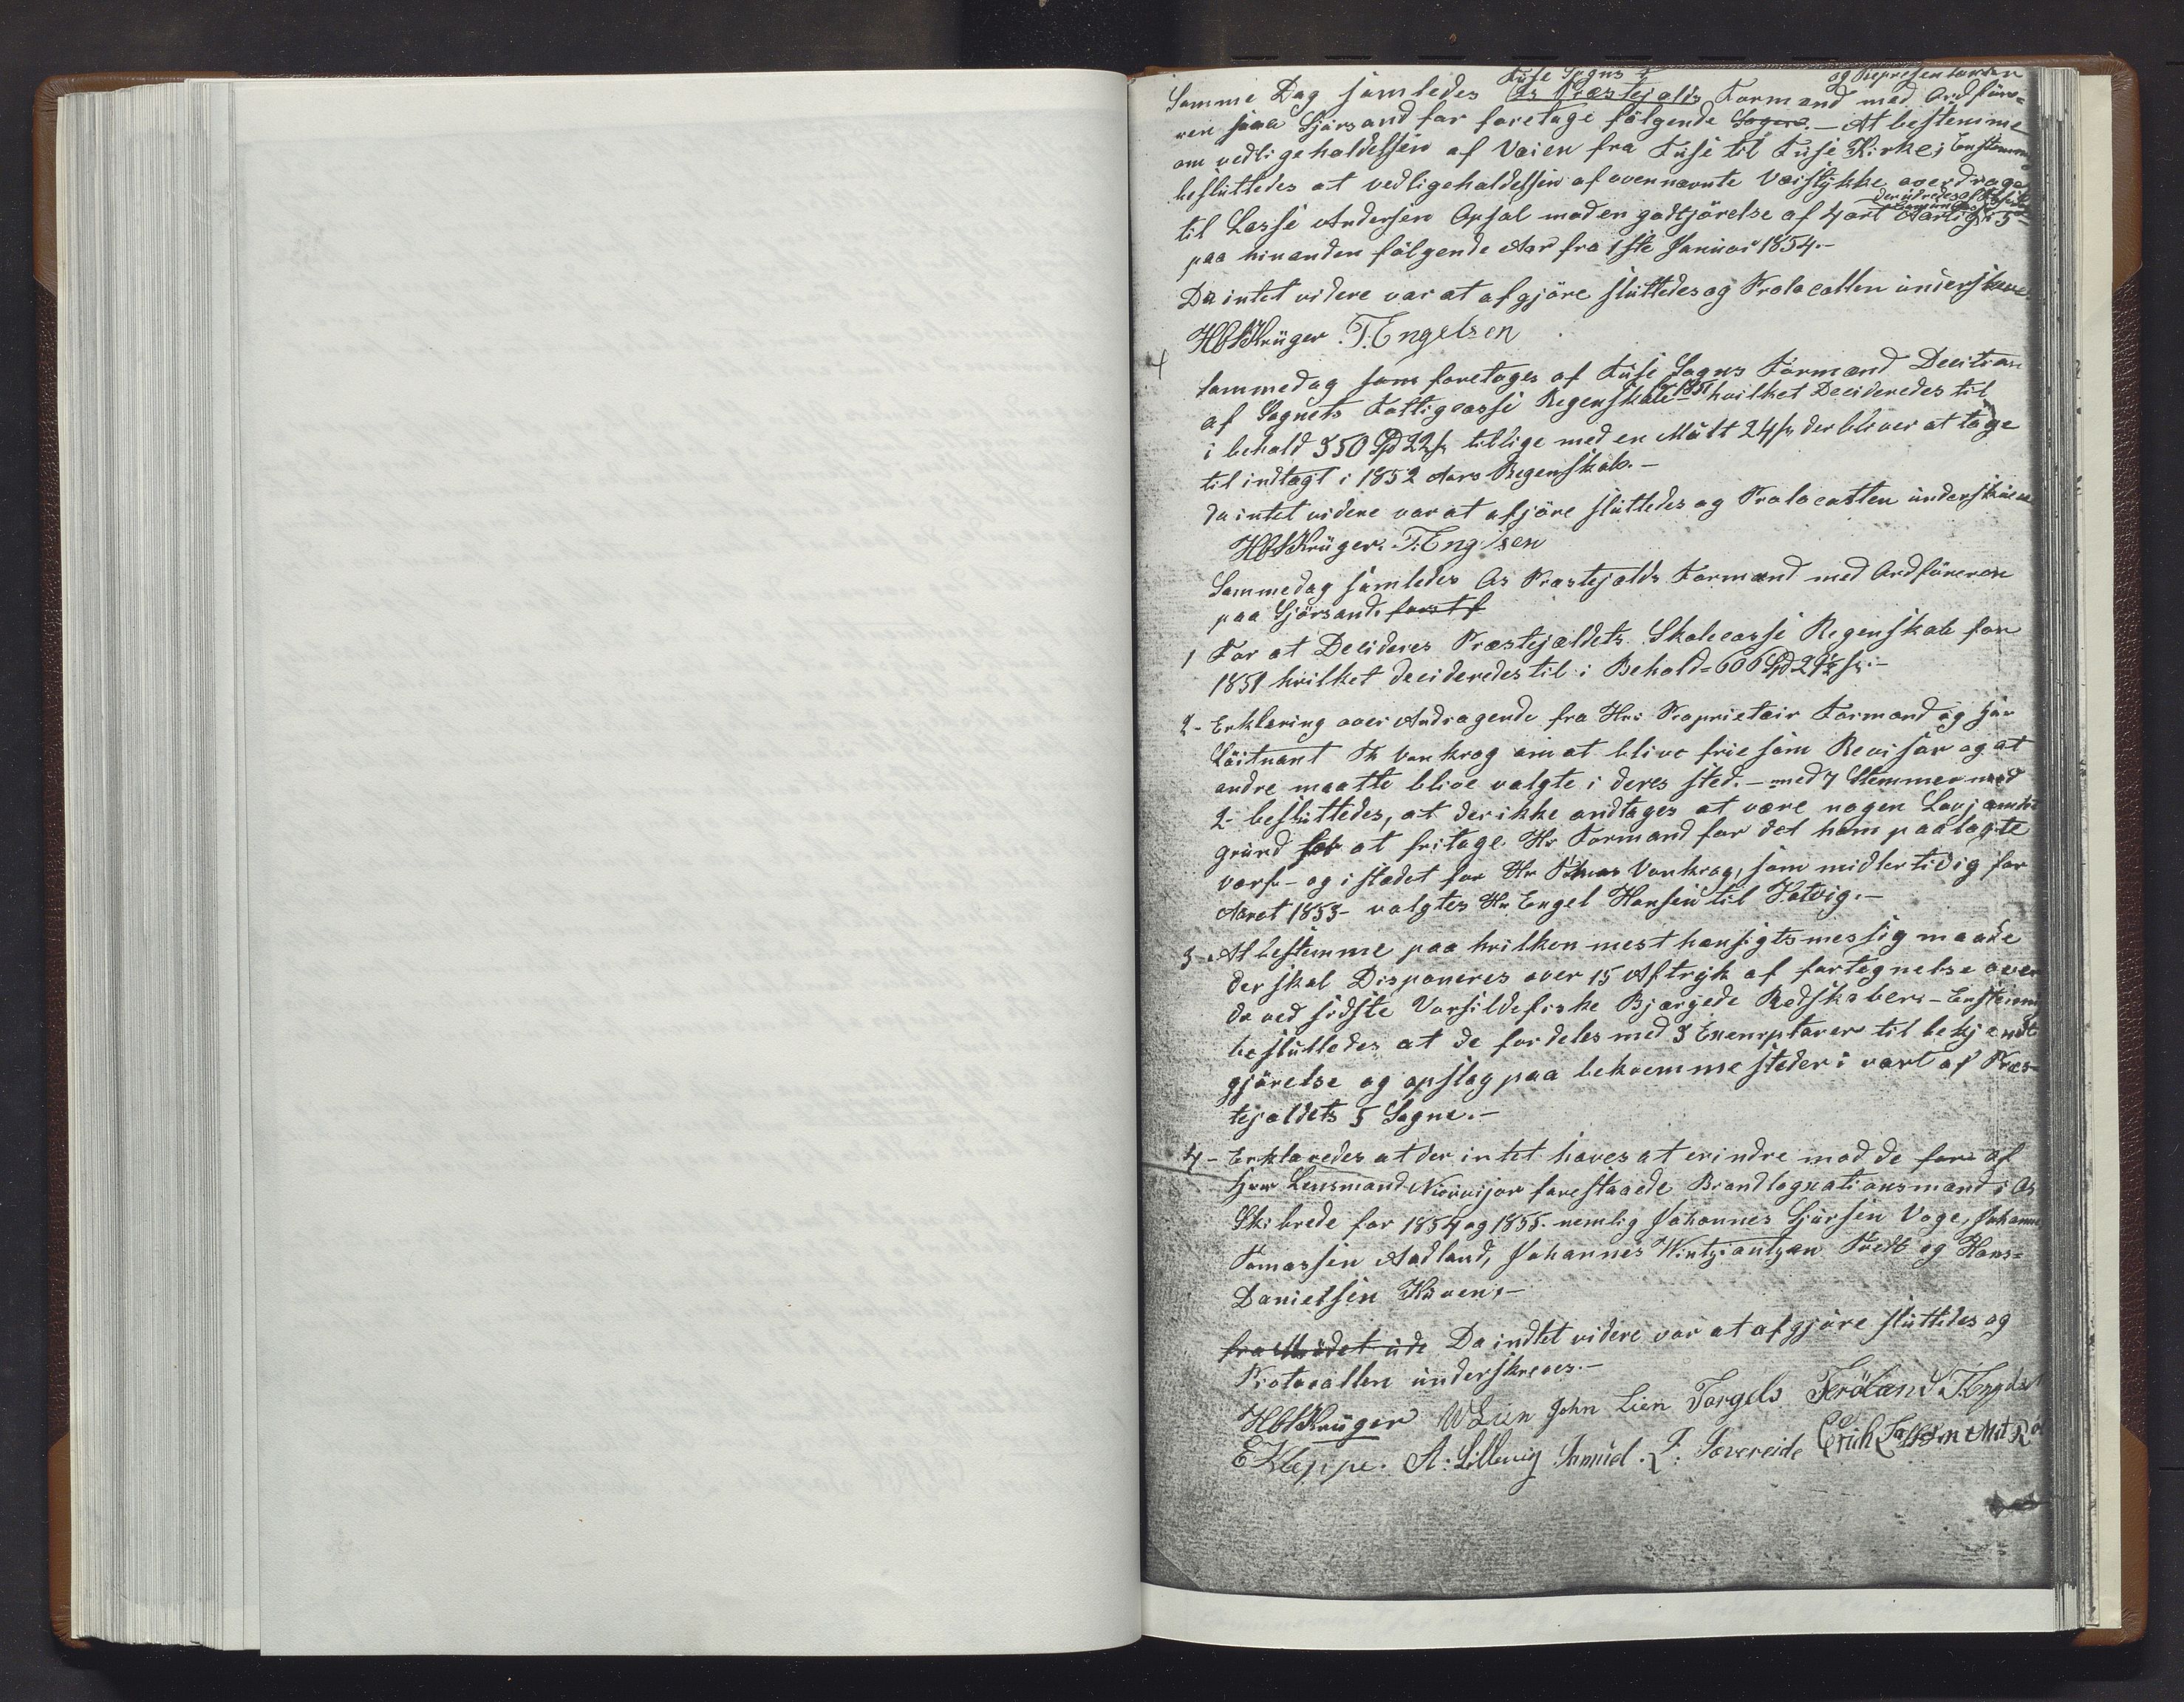 Fuse Sogns
og Representanten
Samme Dag samledes Os Præstejalds Formænd med Ordføre=
ren paa Gjørsand for foretage følgende Sogens. - At bestemme
om vedligeholdelsen af Veien fra Fuse til Fuse Kirke; Enstemm
besluttedes at vedligeholdelsen af ovennævnte Veistykke overdroges
der udredes af
til Lasse Andersen Opsal mod en godtjørelse af 4 ort Aarlig i 5-
paa hinanden følgende Aar fra 1ste Januar 1854.-
Da intet videre var at afgjøre sluttedes og Protocollen underskreves
HCSKrüger. T. Engelsen
4
Sammedag som foretoges af Fuse Sogns Formænd Decition
af Sognets Fattigcasse Regenskab for 1851 hvilket Decideredes til
i behold 350 Spd 22 s tillige med en Mult 24 s, der bliver at tage
til indtægt i 1852 Aars Regenskab.-
da intet videre var at afjøre sluttedes og Protocollen underskreves
HCSKrüger. T. Englsen
Sammedag samledes Os Præstejalds Formænd med Ordføreren
paa Gjørsand. forst f
1 For at Decideres Præstejældets Skolecasse Regenskab for
1851 hvilket decideredes til i Behold = 606 Spd 29½ s.-
2- Erklæring over Andragende fra Hr: Proprietair Formand og Hr
Løitnant Th Von krog om at blive frie som Revisor og at
andre maatte blive valgte i deres sted.- med 7 Stemmer mod
2- besluttedes, at der ikke andtages at være nogen Lovjæmte
grund for at fritage Hr Formand for det ham paalagte
værf- og i stædet for Hr Vonkrog, som midlertidig for
Aaret 1853- valgtes Hr. Engel Hansen til Hatvig.-
3- At bestemme paa hvilken mest hensigtsmessig maade
der skal Disponeres over 15 Aftryk af fortegnelse over
de ved sidste Vorsildefiske Bjærgede Redskaber.- Enstemm
besluttedes at de fordeles med 3 Exemplarer til bekjendt
gjørelse og opslag paa bekvemme steder i vært af Præs-
tejaldets 5 Sogne.-
4- Erklæredes at der intet haves at erindre mod de fore af
Herr Lensmand foreslaaede Brandtagxationsmænd i Os
Skibrede for 1854 og 1855. nemlig Johannes Gjørsen Vage, Johannes
Tomassen Aadland, Johannes Wintzentzen Tvedt og Hans=
Danielsen Kuven.-
fra Mødet ude Da indtet videre var at afgjøre sluttedes og
Protocollen underskreves.-
HCSKrüger WLien John Lien Torgels Frøland T. Engels
E Kleppe. A: Lillevig Smüel. F: Søvereide Erich